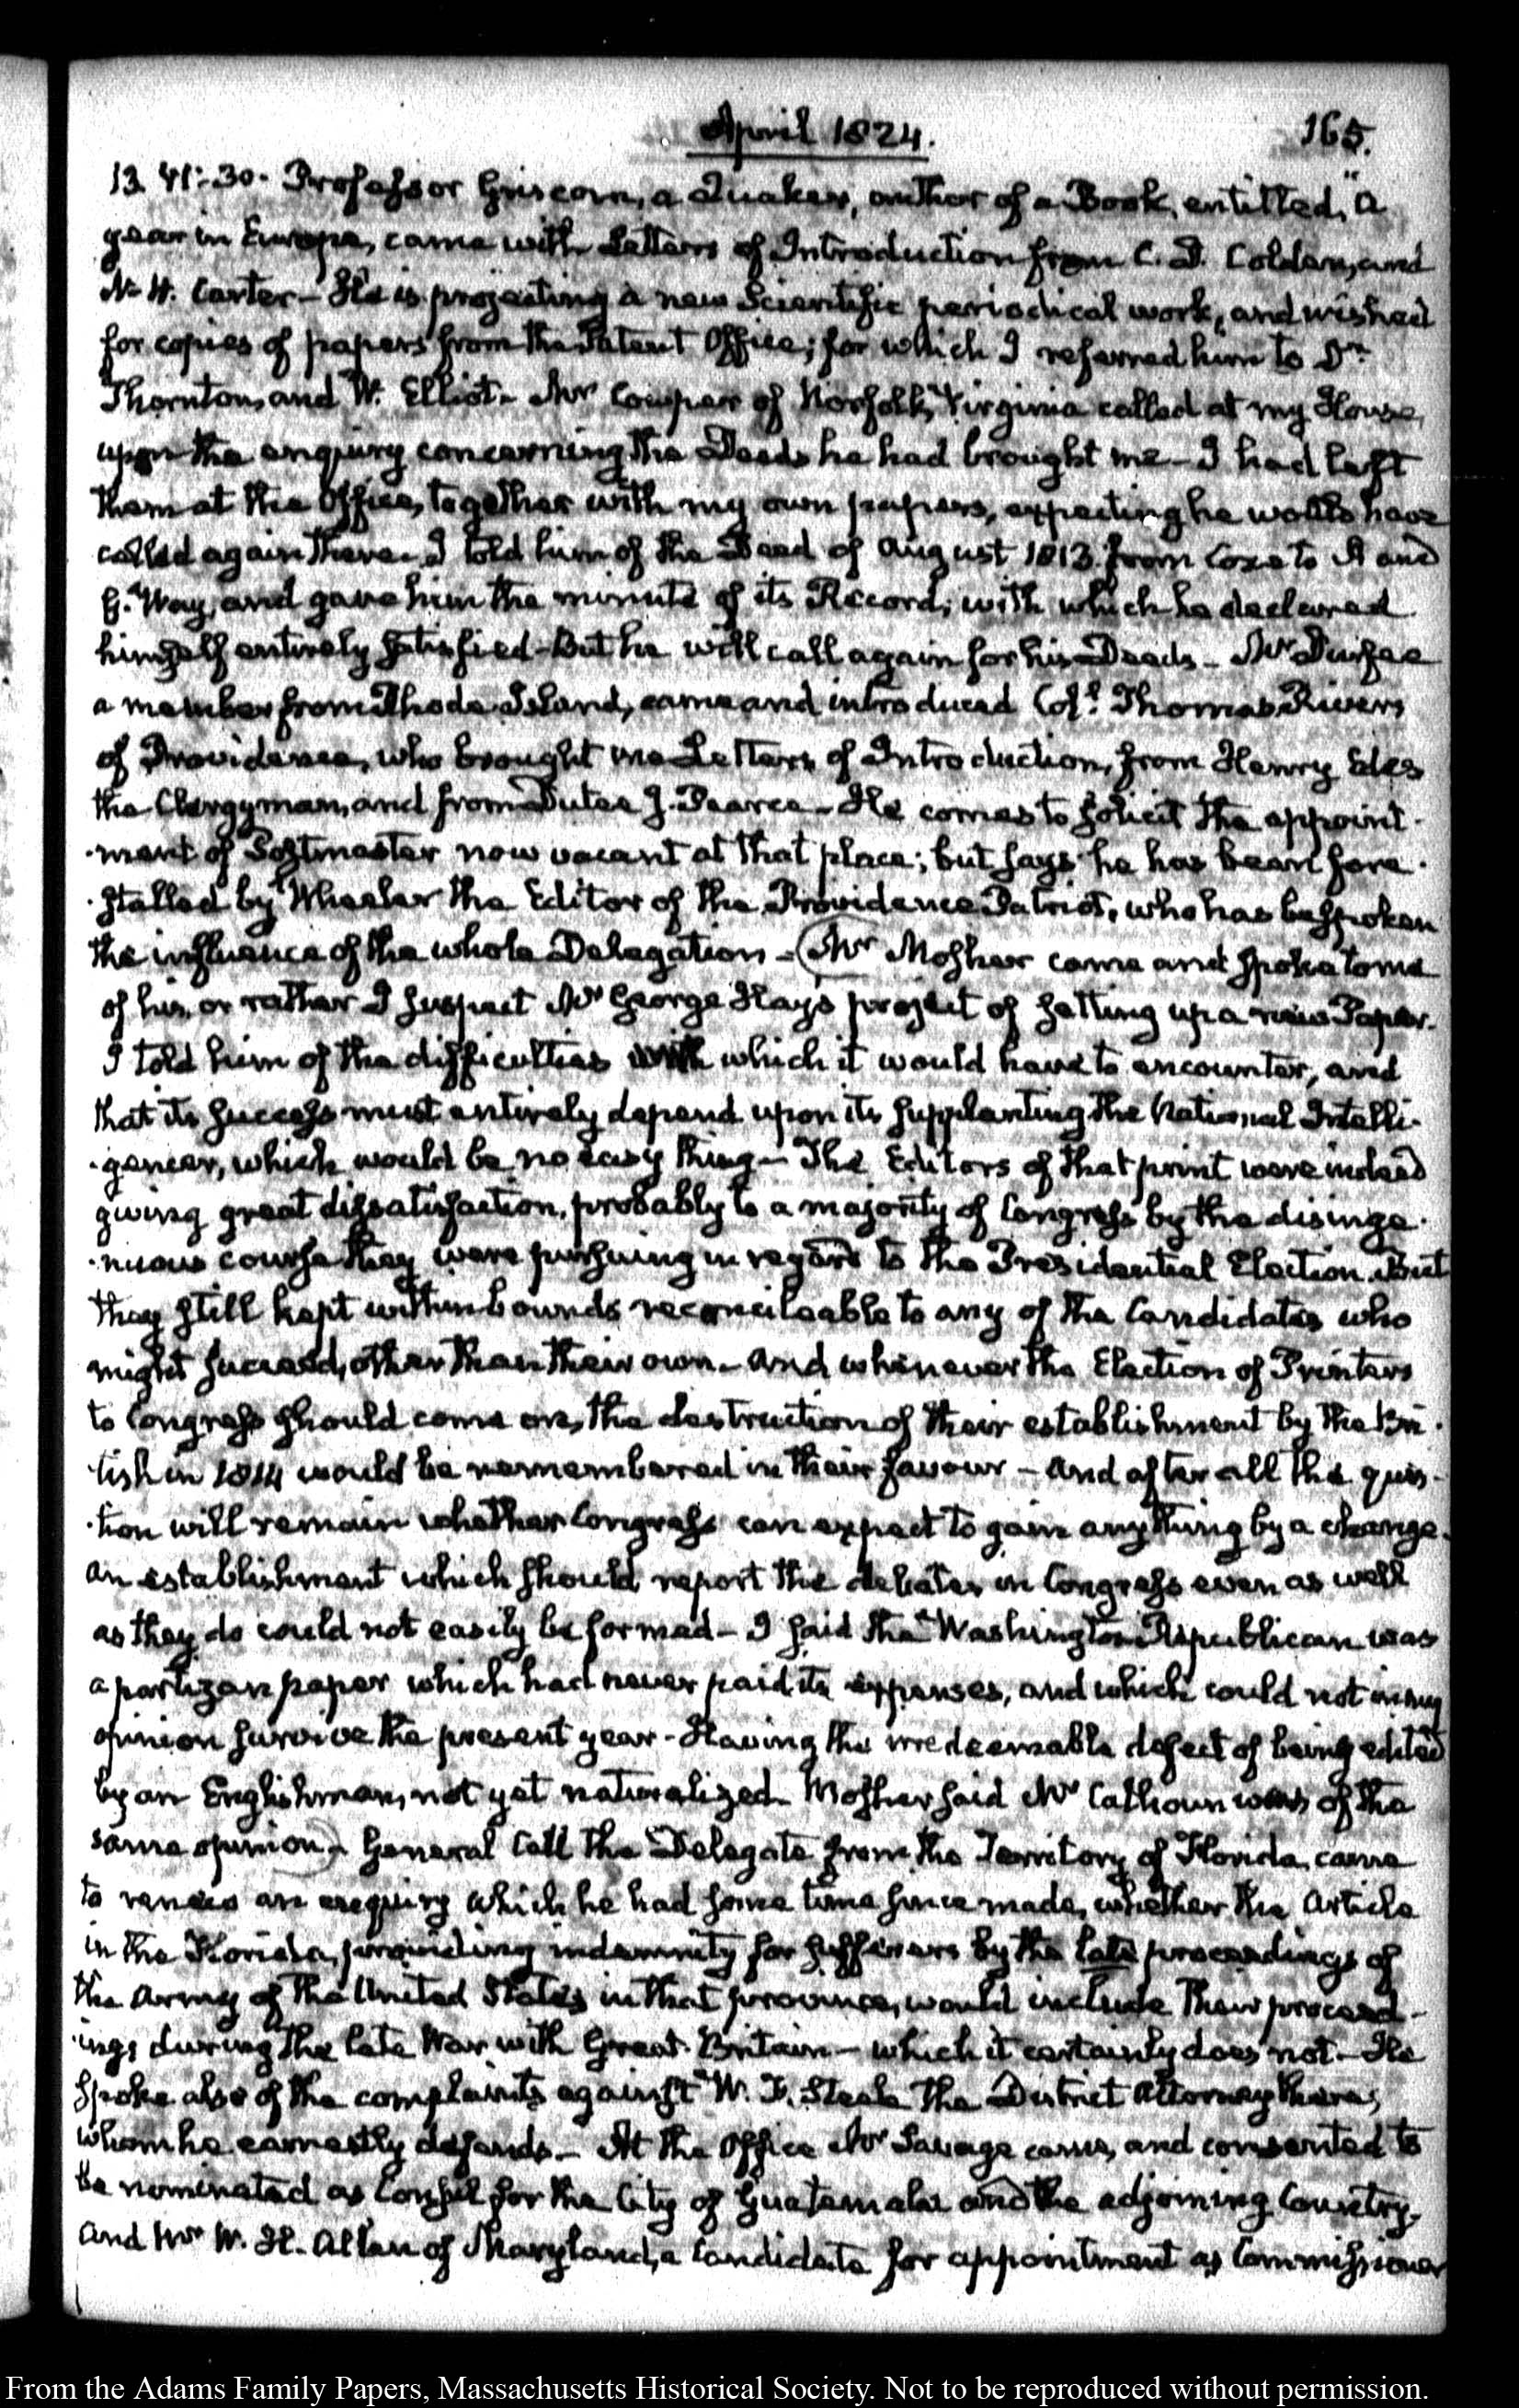 April 1824.
165.
13. VI:30. Professor Griscom, a Quaker, author of a Book, entitled, "A
year in Europe, came with Letters of Introduction from C. D. Colden, and
N. H. Carter— He is projecting a new Scientific periodical work, and wished
for copies of papers from the Patent Office; for which I referred him to Dr.
Thornton, and W. Elliot. Mr Cowper of Norfolk, Virginia called at my House,
upon the enquiry concerning the Deeds he had brought me— I had left
them at the Office, together with my own papers, expecting he would have
called again there. I told him of the Deed of August 1813. from Coxe to A and
G. Way, and gave him the minute of its Record; with which he declared
himself entirely satisfied— But he will call again for his Deeds— Mr Durfee
a member from Rhode-Island, came and introduced Coll. Thomas Rivers
of Providence, who brought me Letters of Introduction, from Henry Edes
the Clergyman, and from Dutee J. Pearce— He comes to solicit the appoint-
-ment of Postmaster now vacant at that place; but says he has been fore-
-stalled by Wheeler the Editor of the Providence Patriot, who has bespoken
the influence of the whole Delegation— (Mr Mosher came and spoke to me
of his, or rather I suspect Mr George Hay's project of setting up a new Paper.
I told him of the difficulties which it would have to encounter, and
that its success must entirely depend upon its supplanting the National Intelli-
-gencer, which would be no easy thing— The Editors of that print were indeed
giving great dissatisfaction, probably to a majority of Congress by the disinge-
-nuous course they were pursuing in regard to the Presidential Election. But
they still kept within bounds reconcileable to any of the Candidates who
might succeed, other than their own. And whenever the Election of Printers
to Congress should come on, the destruction of their establishment by the Bri-
-tish in 1814 would be remembered in their favour— And after all the ques-
-tion will remain whether Congress can expect to gain any thing by a change.
An establishment which should report the debates in Congress even as well
as they do could not easily be formed— I said the Washington Republican was
a partizan paper which had never paid its expenses, and which could not in my
opinion survive the present year— Having the irredeemable defect of being edited
by an Englishman, not yet naturalized. Mosher said Mr Calhoun was of the
same opinion)— General Call the Delegate from the Territory of Florida, came
to renew an enquiry which he had some time since made, whether the Article
in the Florida, providing indemnity for sufferers by the late proceedings of
the Army of the United States in that province, would include their proceed-
-ings during the late War with Great-Britain— which it certainly does not— He
spoke also of the complaints against W. F. Steele the District Attorney there;
whom he earnestly defends— At the Office Mr Savage came, and consented to
be nominated as Consul for the City of Guatemala and the adjoining Country.
And Mr W. H. Allen of Maryland, a Candidate for appointment as Commissioner
From the Adams Family Papers, Massachusetts Historical Society. Not to be reproduced without permission.